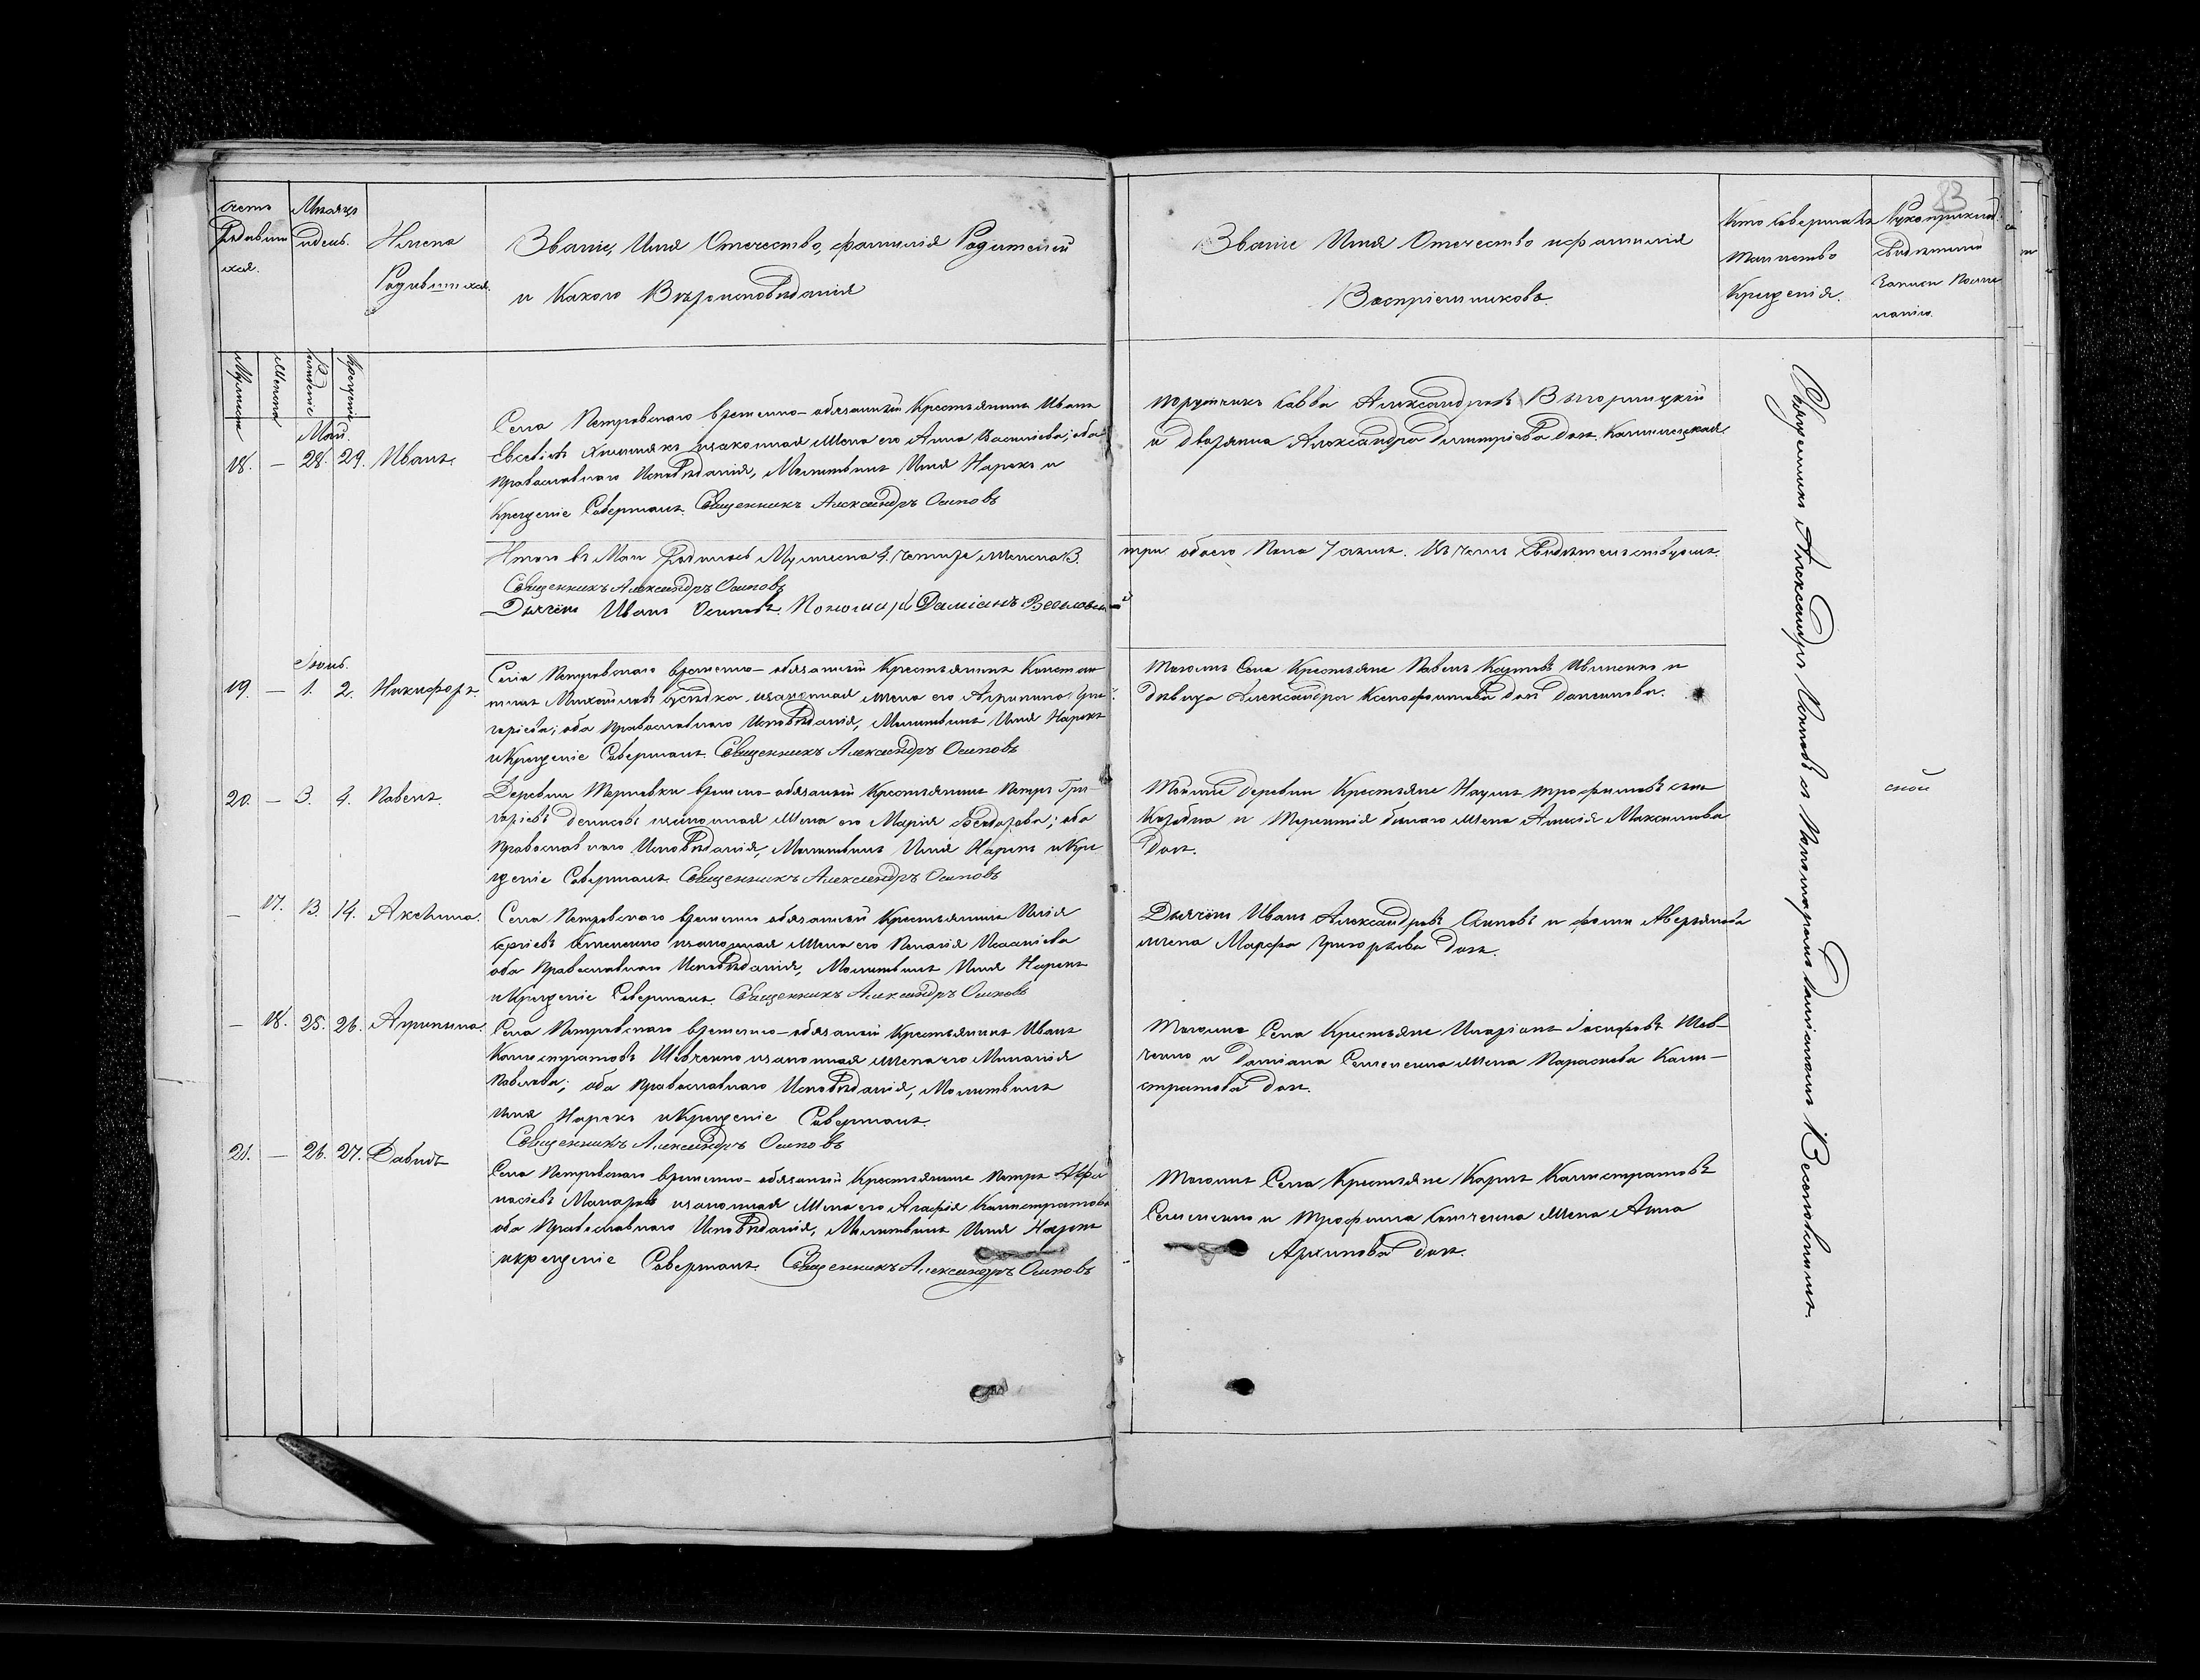 Счетъ
Родившихся.
Мѣсяцъ
и день.
Имена
Родившихся.
Званіе, Имя Отечество, фамилія Родителей
и Какого Вѣроисповѣданія
Мужеска
Женска
Рожденіе
Крещеніе
Май.
18. — 28. 29. Иванъ.
Села Петровскаго временно-обязанный Крестьянинъ Иванъ
Евсевіевъ и законная жена его Анна Васильева; оба
православнаго Исповѣданія, Молитвилъ Имя Нарекъ и
Крещеніе Совершалъ. Священникъ Александръ Осиповъ
Итого въ Маи Родилось Мужеска 4. четыре Женска 3.
Священникъ Александръ Осиповъ
Дьячекъ Иванъ Осиповъ. Пономарь Даміанъ
Іюнь.
19. — 1. 2. Никифоръ.
Села Петровскаго временно-обязанный Крестьянинъ Констан
тинъ Михайловъ и законная жена его Агрипина Гри
горіева; оба православнаго Исповѣданія, Молитвилъ Имя Нарекъ
и Крещеніе Совершалъ. Священникъ Александръ Осиповъ
20. — 3. 4. Павелъ.
Деревни Терновки временно-обязанный Крестьянинъ Петръ Гри-
горіевъ Денисовъ и законная жена его Марія Феодорова; оба
православнаго Исповѣданія, Молитвилъ Имя Нарекъ и Кре
щеніе Совершалъ. Священникъ Александръ Осиповъ
— 17. 13. 14. Акелина.
Села Петровскаго временно обязанный Крестьянинъ Илія
Сергіевъ Семененко и законная жена его Пелагія
оба православнаго Исповѣданія, Молитвилъ Имя Нарекъ
и Крещеніе Совершалъ. Священникъ Александръ Осиповъ
— 18. 25. 26. Агрипина.
Села Петровскаго временно-обязанный Крестьянинъ Иванъ
Калистратовъ Шевченко и законная жена его Миланія
Павлова; оба православнаго Исповѣданія, Молитвилъ
Имя Нарекъ и Крещеніе Совершалъ.
Священникъ Александръ Осиповъ
21. — 26. 27. Давидъ
Села Петровскаго временно-обязанный Крестьянинъ Петръ Афа
насіевъ Макаровъ и законная жена его Агафія Калистратова
оба православнаго Исповѣданія, Молитвилъ Имя Нарекъ
и крещеніе Совершалъ. Священникъ Александръ Осиповъ
23
Званіе Имя Отечество и фамилія
Воспріемниковъ.
Кто Совершалъ
таинство
Крещенія.
Рукоприклад.
свидѣтелей
записи по же
ланію.
порутчикъ Савва Александровъ
и дворянка Александра Димитріева дочь
три обоего Пола 7 семь. Въ чемъ Свидѣтельствуемъ.
Тогожъ Села Крестьяне Павелъ и
дѣвица Александра Ксенофонтова дочь
Тойже деревни Крестьяне Наумъ Трофимовъ сынъ
и Терентія жена Максимова
дочь.
Дьячекъ Иванъ Александровъ Осиповъ и Фомы Аверьянова
жена Марфа Григорьева дочь.
Тогожъ Села Крестьяне Иларіонъ Іосифовъ Шев-
ченко и Даміана Семененка жена Параскева Кали-
стратова дочь.
Тогожъ Села Крестьяне Карпъ Калистратовъ
Семененко и Трофима жена Анна
Архипова дочь.
Священникъ Александръ Осиповъ съ Пономаремъ Даміаномъ